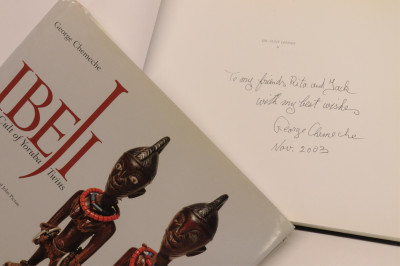 George Chemeche
IBEJI
Cult of Yoruba Twins
"To my friends Rita and Jack
with my best wishes,
George Chemeche
Nov. 2003